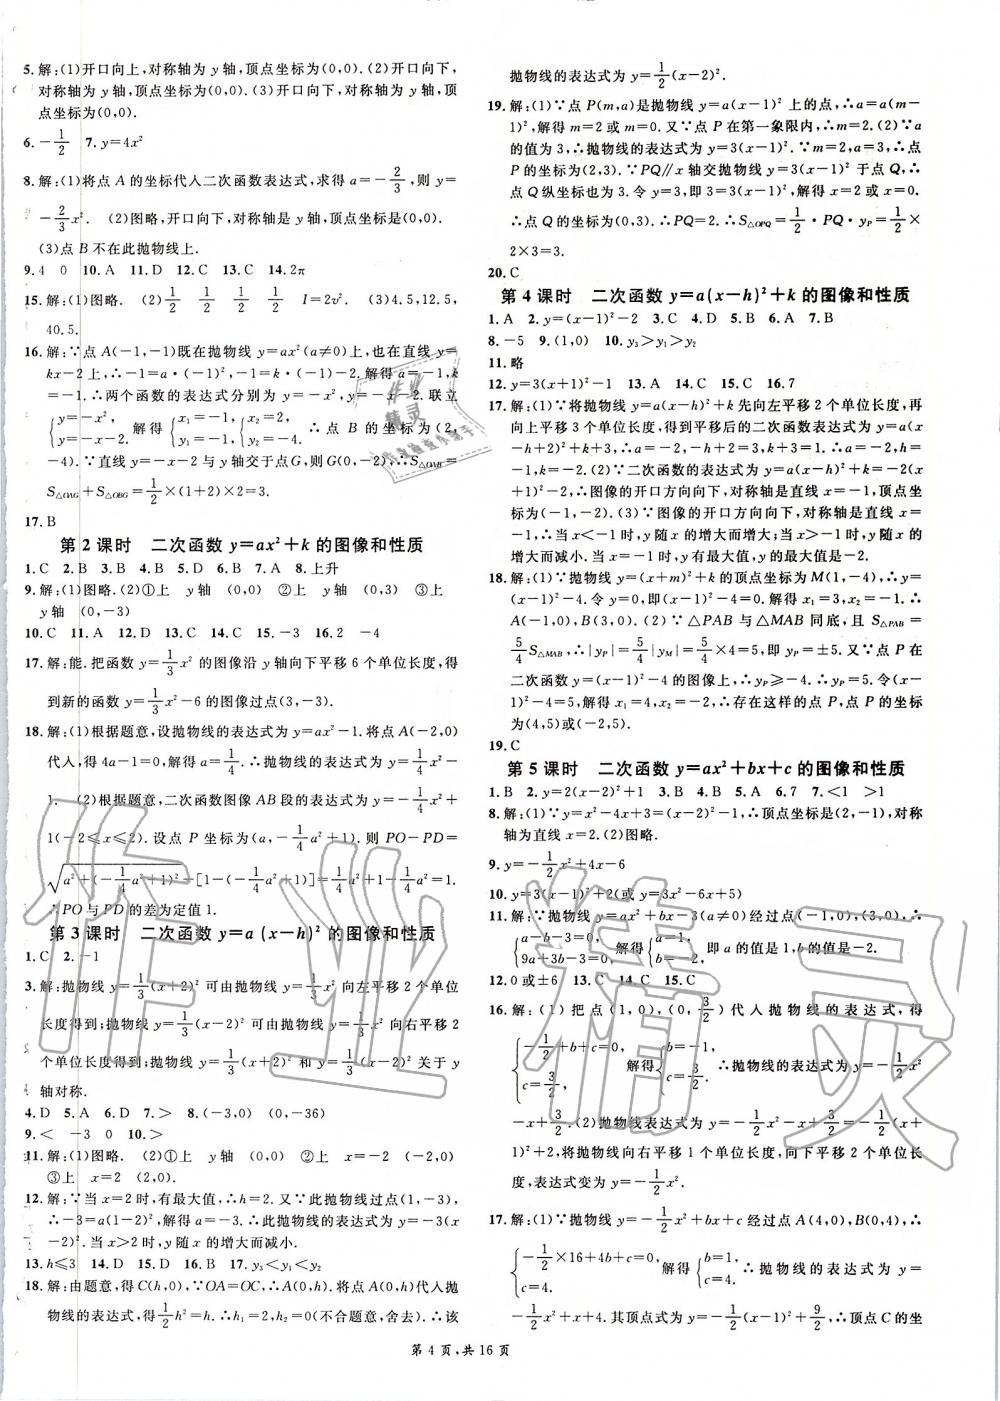 5.解:(1)开口向上,对称轴为 y 轴,顶点坐标为(0,0).(2)开口向下,
对称轴为 y 轴,顶点坐标为(0,0).(3)开口向上,对称轴为 y 轴,顶
点坐标为(0,0).
6.-1/2 7.y=4x²
8.解:(1)将点 A 的坐标代入二次函数表达式,求得 a=-2/3,则 y=
-2/3x². (2)图略,开口向下,对称轴是 y 轴,顶点坐标是(0,0).
(3)点 B 不在此抛物线上.
9.4 0 10.A 11.D 12.C 13.C 14.2π
15.解:(1)图略. (2)1/2 1/2 1/2 1/2 I=2v². (3)4.5,12.5,
40.5.
16.解:∵点 A(-1,-1)既在抛物线 y=ax²(a≠0)上,也在直线 y=
kx-2 上,∴-1=a·(-1)²,-1=k·(-1)-2.解得 a=-1,k
=-1.∴两个函数的表达式分别为 y=-x²,y=-x-2.联立
{y=-x², y=-x-2. 解得{x₁=-1, y₁=-1. {x₂=2, y₂=-4. ∴点 B 的坐标为(2,
-4).∵直线 y=-x-2 与 y 轴交于点G,则 G(0,-2),∴S△OAB=
S△OAG+S△OBG=1/2×(1+2)×2=3.
17.B
第 2 课时 二次函数 y=ax²+k 的图像和性质
1.C 2.B 3.B 4.D 5.D 6.B 7.A 8.上升
9.解:(1)图略.(2)①上 y轴 (0,0) ②上 y轴 (0,3) ③上
y轴 (0,-3)
10.C 11.A 12.D 13.C 14.C 15.-3 16.2 -4
17.解:能.把函数 y=1/3x² 的图像沿 y 轴向下平移 6 个单位长度,得
到新的函数 y=1/3x²-6 的图像过点(3,-3).
18.解:(1)根据题意,设抛物线的表达式为 y=ax²-1.将点 A(-2,0)
代入,得 4a-1=0.解得 a=1/4.∴抛物线的表达式为 y=1/4x²-
1. (2)根据题意,二次函数图像 AB 段的表达式为 y=-1/4x²+
1(-2≤x≤2).设点 P 坐标为(a,-1/4a²+1).则 PO-PD=
√(a²+(-1/4a²+1)²)-[1-(-1/4a²+1)]=1/4a²+1-1/4a²=1.
∴PO与PD的差为定值1.
第 3 课时 二次函数 y=a(x-h)² 的图像和性质
1.C 2.-1
3.解:抛物线 y=1/3(x+2)² 可由抛物线 y=1/3x² 向左平移 2 个单位
长度得到;抛物线 y=1/3(x-2)² 可由抛物线 y=1/3x² 向右平移 2
个单位长度得到.抛物线 y=1/3(x+2)² 和 y=1/3(x-2)² 关于 y
轴对称.
4.D 5.A 6.D 7.> 8.(-3,0) (0,-36)
9.< -3 0 10.>
11.解:(1)图略. (2)①上 y轴 (0,0) ②上 x=-2 (-2,0)
③上 x=2 (2,0).
12.解:∵当 x=2 时,有最大值,∴h=2.又∵此抛物线过点(1,-3),
∴-3=a(1-2)²,解得 a=-3.∴此抛物线的表达式为 y=-3(x
-2)².当 x>2 时,y 随 x 的增大而减小.
13.h≤3 14.D 15.D 16.B 17.y₃<y₁<y₂
18.解:由题意,得 C(h,0),∵OA=OC,∴A(0,h).将点 A(0,h)代入抛
物线的表达式,得1/2h²=h.∴h₁=2,h₂=0(不合题意,舍去).∴该
抛物线的表达式为 y=1/2(x-2)².
19.解:(1)∵点 P(m,a)是抛物线 y=a(x-1)² 上的点,∴a=a(m-
1)²,解得 m=2 或 m=0.又∵点 P 在第一象限内,∴m=2.(2)∵a
的值为 3,∴抛物线的表达式为 y=3(x-1)².∵m=2,a=3,∴点
P 的坐标为(2,3).∵PQ∥x 轴交抛物线 y=3(x-1)² 于点 Q,∴点
Q 纵坐标也为 3.令 y=3,即 3=3(x-1)²,解得 x=2 或 x=0.
∴点 Q 的坐标为(0,3).∴PQ=2.∴S△OPQ=1/2·PQ·yP=1/2×
2×3=3.
20.C
第 4 课时 二次函数 y=a(x-h)²+k 的图像和性质
1.A 2.y=(x-1)²-2 3.C 4.D 5.B 6.A 7.B
8.-5 9.(1,0) 10.y₃>y₁>y₂
11.略
12.y=3(x+1)²-1 13.A 14.C 15.C 16.7
17.解:(1)∵将抛物线 y=a(x-h)²+k 先向左平移 2 个单位长度,再
向上平移 3 个单位长度,得到平移后的二次函数表达式为 y=a(x
-h+2)²+k+3,∴a=-1,-h+2=3,k+3=1.∴a=-1,h=
-1,k=-2.(2)∵二次函数的表达式为 y=a(x-h)²+k=-(x
+1)²-2,∴图像的开口方向向下,对称轴是直线 x=-1,顶点坐标
为(-1,-2).(3)∵图像的开口方向向下,对称轴是直线 x=
-1,∴当 x<-1 时,y 随 x 的增大而增大;当 x>-1 时,y 随 x 的
增大而减小.当 x=-1 时,y 有最大值,y 的最大值是-2.
18.解:(1)∵y=(x+m)²+k 的顶点坐标为 M(1,-4),∴y=
(x-1)²-4.令 y=0,即(x-1)²-4=0.解得 x₁=3,x₂=-1.∴
A(-1,0),B(3,0).(2)∵△PAB 与△MAB 同底,且 S△PAB=
5/4S△MAB,∴|yP|=5/4|yM|=5/4×4=5,即 yP=±5.又∵点 P 在
二次函数 y=(x-1)²-4 的图像上,∴yP≥-4.∴yP=5.令(x
-1)²-4=5,解得 x₁=4,x₂=-2.∴存在这样的点 P,点 P 的坐标
为(4,5)或(-2,5).
19.C
第 5 课时 二次函数 y=ax²+bx+c 的图像和性质
1.B 2.y=2(x-2)²+1 3.B 4.B 5.A 6.7 7.<1 >1
8.解:(1)∵y=x²-4x+3=(x-2)²-1,∴顶点坐标是(2,-1),对称
轴为直线 x=2.(2)图略.
9.y=-1/2x²+4x-6
10.y=3(x-1)²+2(或 y=3x²-6x+5)
11.解:∵抛物线 y=ax²+bx-3(a≠0)经过点(-1,0),(3,0),∴
{a-b-3=0, 9a+3b-3=0. 解得{a=1, b=-2. 即 a 的值是 1,b 的值是-2.
12.0或±6 13.C 14.C 15.C
16.解:(1)把点(1,0),(0,3/2)代入抛物线的表达式,得
{-1/2+b+c=0, c=3/2. 解得{b=-1, c=3/2. ∴抛物线的表达式为 y=-1/2x²
-x+3/2.(2)抛物线表达式为 y=-1/2x²-x+3/2=-1/2(x+
1)²+2,将抛物线向右平移 1 个单位长度,向下平移 2 个单位长
度,表达式变为 y=-1/2x².
17.解:(1)∵抛物线 y=-1/2x²+bx+c 经过点 A(4,0),B(0,4),∴
{-1/2×16+4b+c=0, c=4. 解得{b=1, c=4. ∴抛物线的表达式为 y=
-1/2x²+x+4=-1/2(x-1)²+9/2.其顶点式为 y=-1/2(x-1)²+9/2.∴顶点C的坐
第 4 页,共 16 页
作业精灵